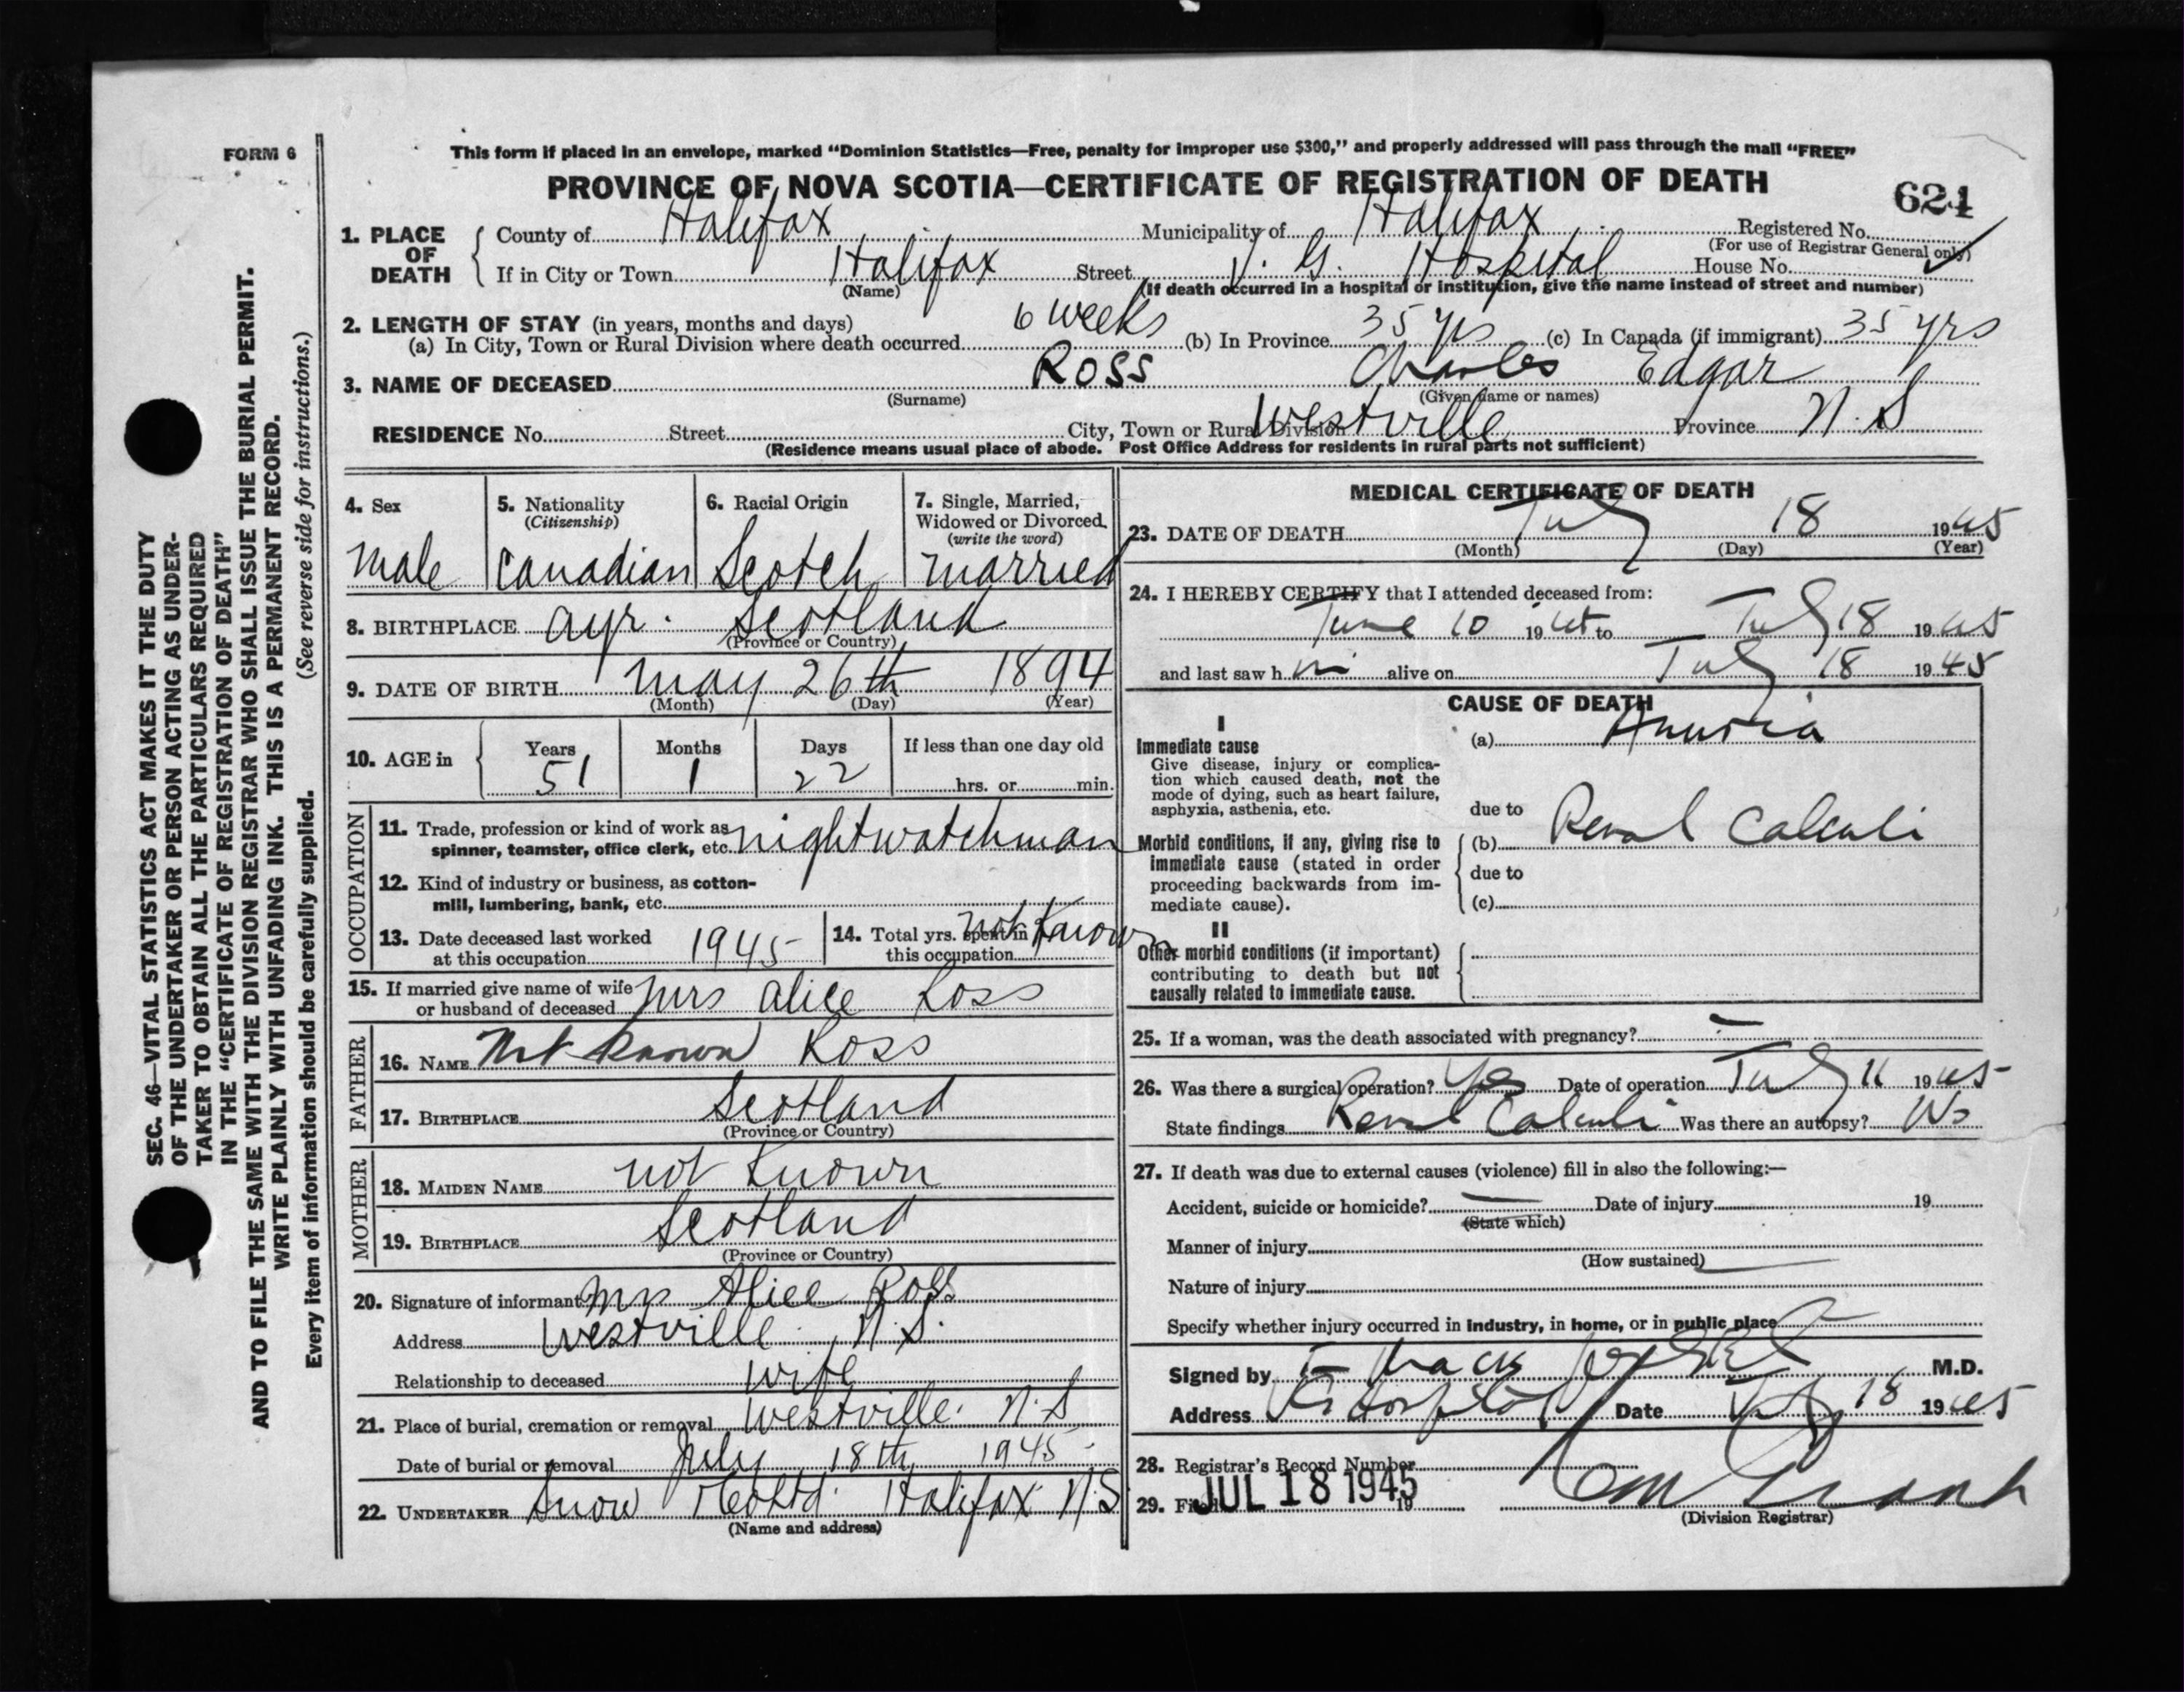 FORM 6
This form if placed in an envelope, marked “Dominion Statistics—Free, penalty for improper use $300,” and properly addressed will pass through the mail “FREE”
PROVINCE OF NOVA SCOTIA—CERTIFICATE OF REGISTRATION OF DEATH
621
1. PLACE OF DEATH
County of Halifax Municipality of Halifax Registered No.
(For use of Registrar General only)
If in City or Town Halifax Street V. G. Hospital House No.
(Name) (If death occurred in a hospital or institution, give the name instead of street and number)
2. LENGTH OF STAY (in years, months and days)
(a) In City, Town or Rural Division where death occurred 6 weeks (b) In Province 35 yrs (c) In Canada (if immigrant) 35 yrs
3. NAME OF DECEASED Ross Charles Edgar
(Surname) (Given name or names)
RESIDENCE No. Street City, Town or Rural Division Westville Province N. S
(Residence means usual place of abode. Post Office Address for residents in rural parts not sufficient)
4. Sex
male
5. Nationality
(Citizenship)
Canadian
6. Racial Origin
Scotch
7. Single, Married,
Widowed or Divorced
(write the word)
married
8. BIRTHPLACE Ayr. Scotland
(Province or Country)
9. DATE OF BIRTH May 26th 1894
(Month) (Day) (Year)
10. AGE in
Years Months Days If less than one day old
51 1 22 hrs. or min.
OCCUPATION
11. Trade, profession or kind of work as
spinner, teamster, office clerk, etc. nightwatchman
12. Kind of industry or business, as cotton-
mill, lumbering, bank, etc.
13. Date deceased last worked
at this occupation 1945
14. Total yrs. spent in
this occupation not Known
15. If married give name of wife
or husband of deceased Mrs Alice Ross
FATHER
16. NAME Not Known Ross
17. BIRTHPLACE Scotland
(Province or Country)
MOTHER
18. MAIDEN NAME not Known
19. BIRTHPLACE Scotland
(Province or Country)
20. Signature of informant Mrs Alice Ross
Address Westville N. S.
Relationship to deceased wife
21. Place of burial, cremation or removal Westville. N. S
Date of burial or removal July 18th 1945
22. UNDERTAKER Snow & Co Ltd. Halifax N.S
(Name and address)
MEDICAL CERTIFICATE OF DEATH
23. DATE OF DEATH July 18 1945
(Month) (Day) (Year)
24. I HEREBY CERTIFY that I attended deceased from:
June 10 1945 to July 18 1945
and last saw him alive on July 18 1945
CAUSE OF DEATH
I
Immediate cause
Give disease, injury or complica-
tion which caused death, not the
mode of dying, such as heart failure,
asphyxia, asthenia, etc.
(a) Anuria
due to
Morbid conditions, if any, giving rise to
immediate cause (stated in order
proceeding backwards from im-
mediate cause).
(b) Renal Calculi
due to
(c)
II
Other morbid conditions (if important)
contributing to death but not
causally related to immediate cause.
25. If a woman, was the death associated with pregnancy? —
26. Was there a surgical operation? Yes Date of operation July 11 1945
State findings Renal Calculi Was there an autopsy? No
27. If death was due to external causes (violence) fill in also the following:—
Accident, suicide or homicide? — Date of injury 19
(State which)
Manner of injury
(How sustained)
Nature of injury
Specify whether injury occurred in industry, in home, or in public place
Signed by M.D.
Address V G Hospital Date July 18 1945
28. Registrar's Record Number
29. Filed JUL 18 1945 19
(Division Registrar)
SEC. 46—VITAL STATISTICS ACT MAKES IT THE DUTY
OF THE UNDERTAKER OR PERSON ACTING AS UNDER-
TAKER TO OBTAIN ALL THE PARTICULARS REQUIRED
IN THE “CERTIFICATE OF REGISTRATION OF DEATH”
AND TO FILE THE SAME WITH THE DIVISION REGISTRAR WHO SHALL ISSUE THE BURIAL PERMIT.
WRITE PLAINLY WITH UNFADING INK. THIS IS A PERMANENT RECORD.
Every item of information should be carefully supplied. (See reverse side for instructions.)